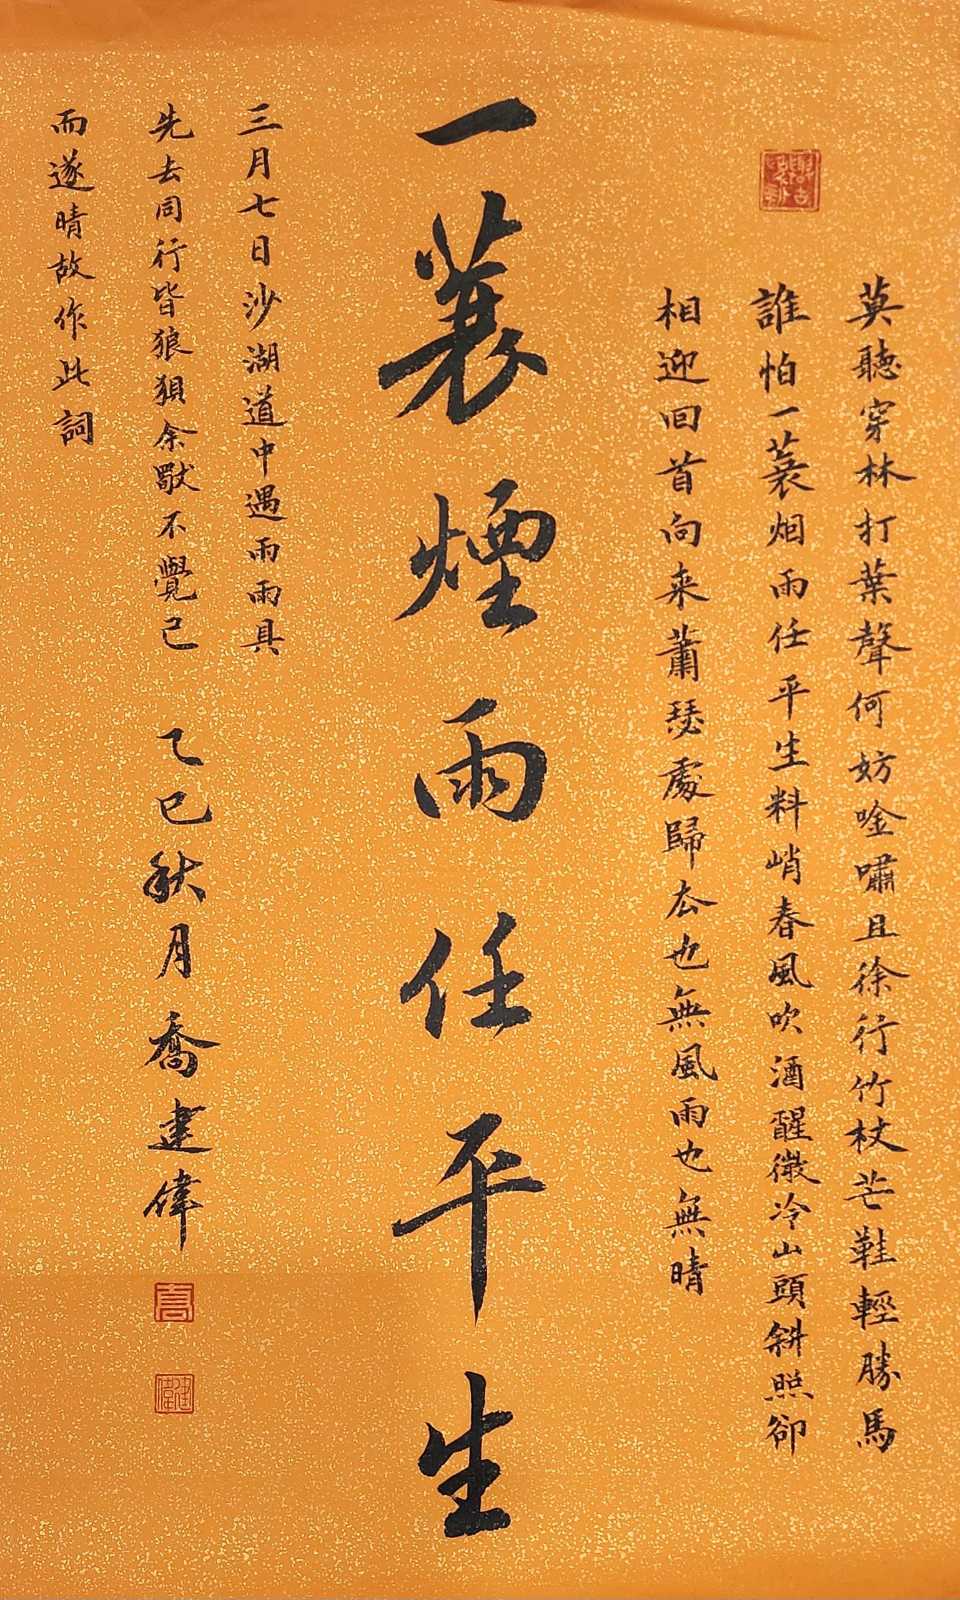 莫聽穿林打葉聲何妨唫嘯且徐行竹杖芒鞋輕勝馬
誰怕一蓑烟雨任平生料峭春風吹酒醒微冷山頭斜照卻
相迎回首向来蕭瑟處歸去也無風雨也無晴
一蓑煙雨任平生
三月七日沙湖道中遇雨雨具
先去同行皆狼狽余獨不覺已
而遂晴故作此詞
乙巳秋月喬建偉
喬
建偉